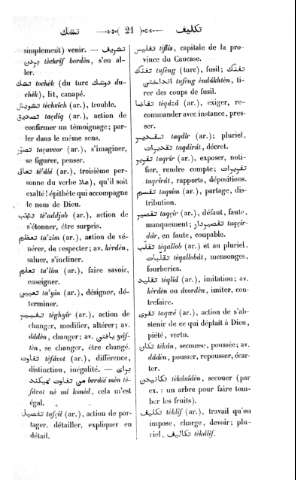 تكليف
21
تشك
simplement) venir. — تشريف
بردن techrif berdèn, s'en al-
ler.
توشك techek (du turc دوشك du-
chèk), lit, canapé.
تشويش techwich (ar.), trouble.
تصديق tasdiq (ar.), action de
confirmer un témoignage; par-
ler dans le même sens.
تصور taçawor (ar.), s'imaginer,
se figurer, penser.
تعالى té'ala (ar.), troisième per-
sonne du verbe (علا), qu'il soit
exalté! épithète qui accompagne
le nom de Dieu.
تعجب té'addjub (ar.), action de
s'étonner, être surpris.
تعظيم ta'zim (ar.), action de vé-
nérer, de respecter; av. kèrdèn,
saluer, s'incliner.
تعليم ta'lim (ar.), faire savoir,
enseigner.
تعيين ta'yin (ar.), désigner, dé-
terminer.
تغيير teghyir (ar.), action de
changer, modifier, altérer; av.
dadèn, changer; av. يافتن yaf-
tèn, se changer, être changé.
تفاوت tefavut (ar.), différence,
distinction, inégalité. — براى
من تفاوت نميكند bèraï mèn té-
favut nè mi konèd, cela m'est
égal.
تفصيل tafçil (ar.), action de par-
tager, détailler, expliquer en
détail.
تفليس tiflis, capitale de la pro-
vince du Caucase.
تفنك tufèng (turc), fusil; تفنك
انداختن tufèng èndakhtèn, ti-
rer des coups de fusil.
تقاضا teqaza (ar.), exiger, re-
commander avec instance, pres-
ser.
تقدير taqdir (ar.); pluriel,
تقديرات taqdirat, décret.
تقرير taqrir (ar.), exposer, noti-
fier, rendre compte; تقريرات
taqrirat, rapports, dépositions.
تقسيم taqsim (ar.), partage, dis-
tribution.
تقصير taqsir (ar.), défaut, faute,
manquement; تقصيردار taqsir-
dar, en faute, coupable.
تقلب teqallob (ar.) et au pluriel,
تقلبات teqallobat, mensonges,
fourberies.
تقليد teqlid (ar.), imitation; av.
kèrdèn ou averdèn, imiter, con-
trefaire.
تقوى teqwa (ar.), action de s'ab-
stenir de ce qui déplait à Dieu,
piété, vertu.
تكان tekan, secousse, poussée; av.
dadèn, pousser, repousser, écar-
ter.
تكانيدن tekanidèn, secouer (par
ex.: un arbre pour faire tom-
ber les fruits).
تكليف teklif (ar.), travail qu'on
impose, charge, devoir; plu-
riel, تكاليف tekalif.